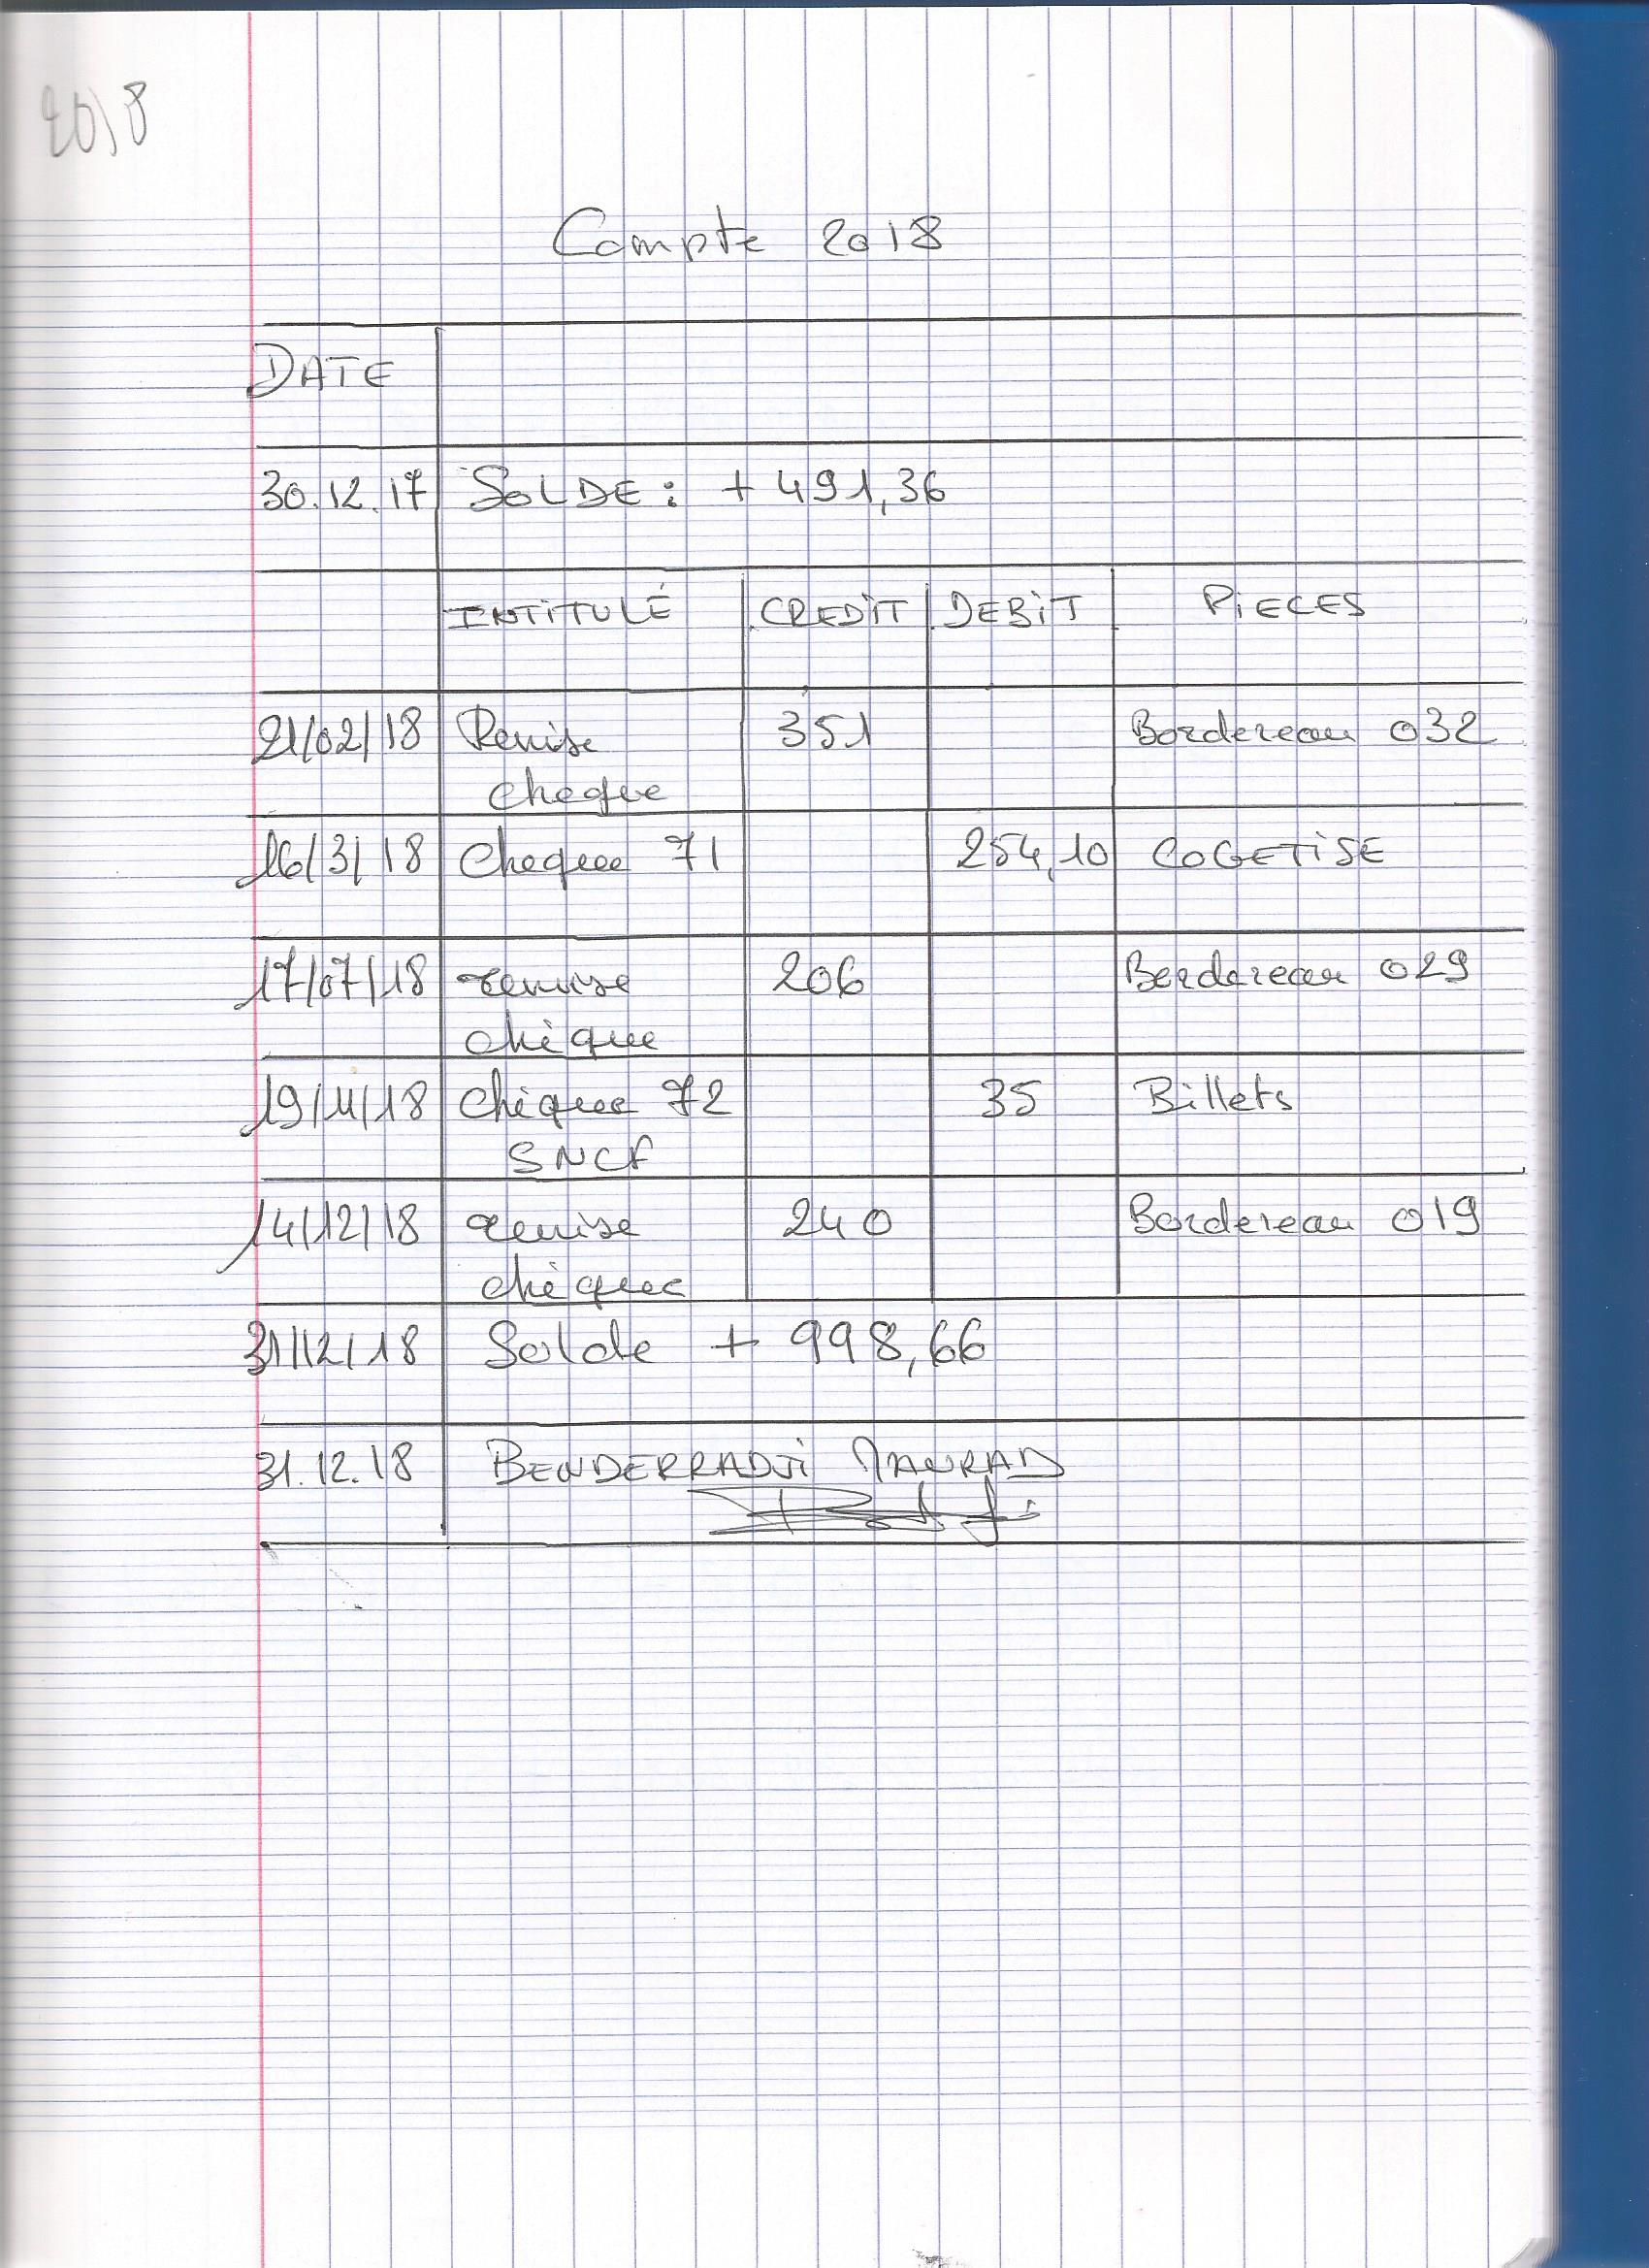 2018
Compte 2018
DATE
30.12.17 SOLDE : + 491,36
INTITULÉ CREDIT DEBIT PIECES
21/02/18 Remise 351 Bordereau 032
cheque
16/3/18 Cheque 71 254,10 COGETISE
17/07/18 remise 206 Bordereau 029
chèque
19/11/18 Chèque 72 35 Billets
SNCF
14/12/18 remise 240 Bordereau 019
chèques
31/12/18 Solde + 998,66
31.12.18 BENDERRADJI MAURAD